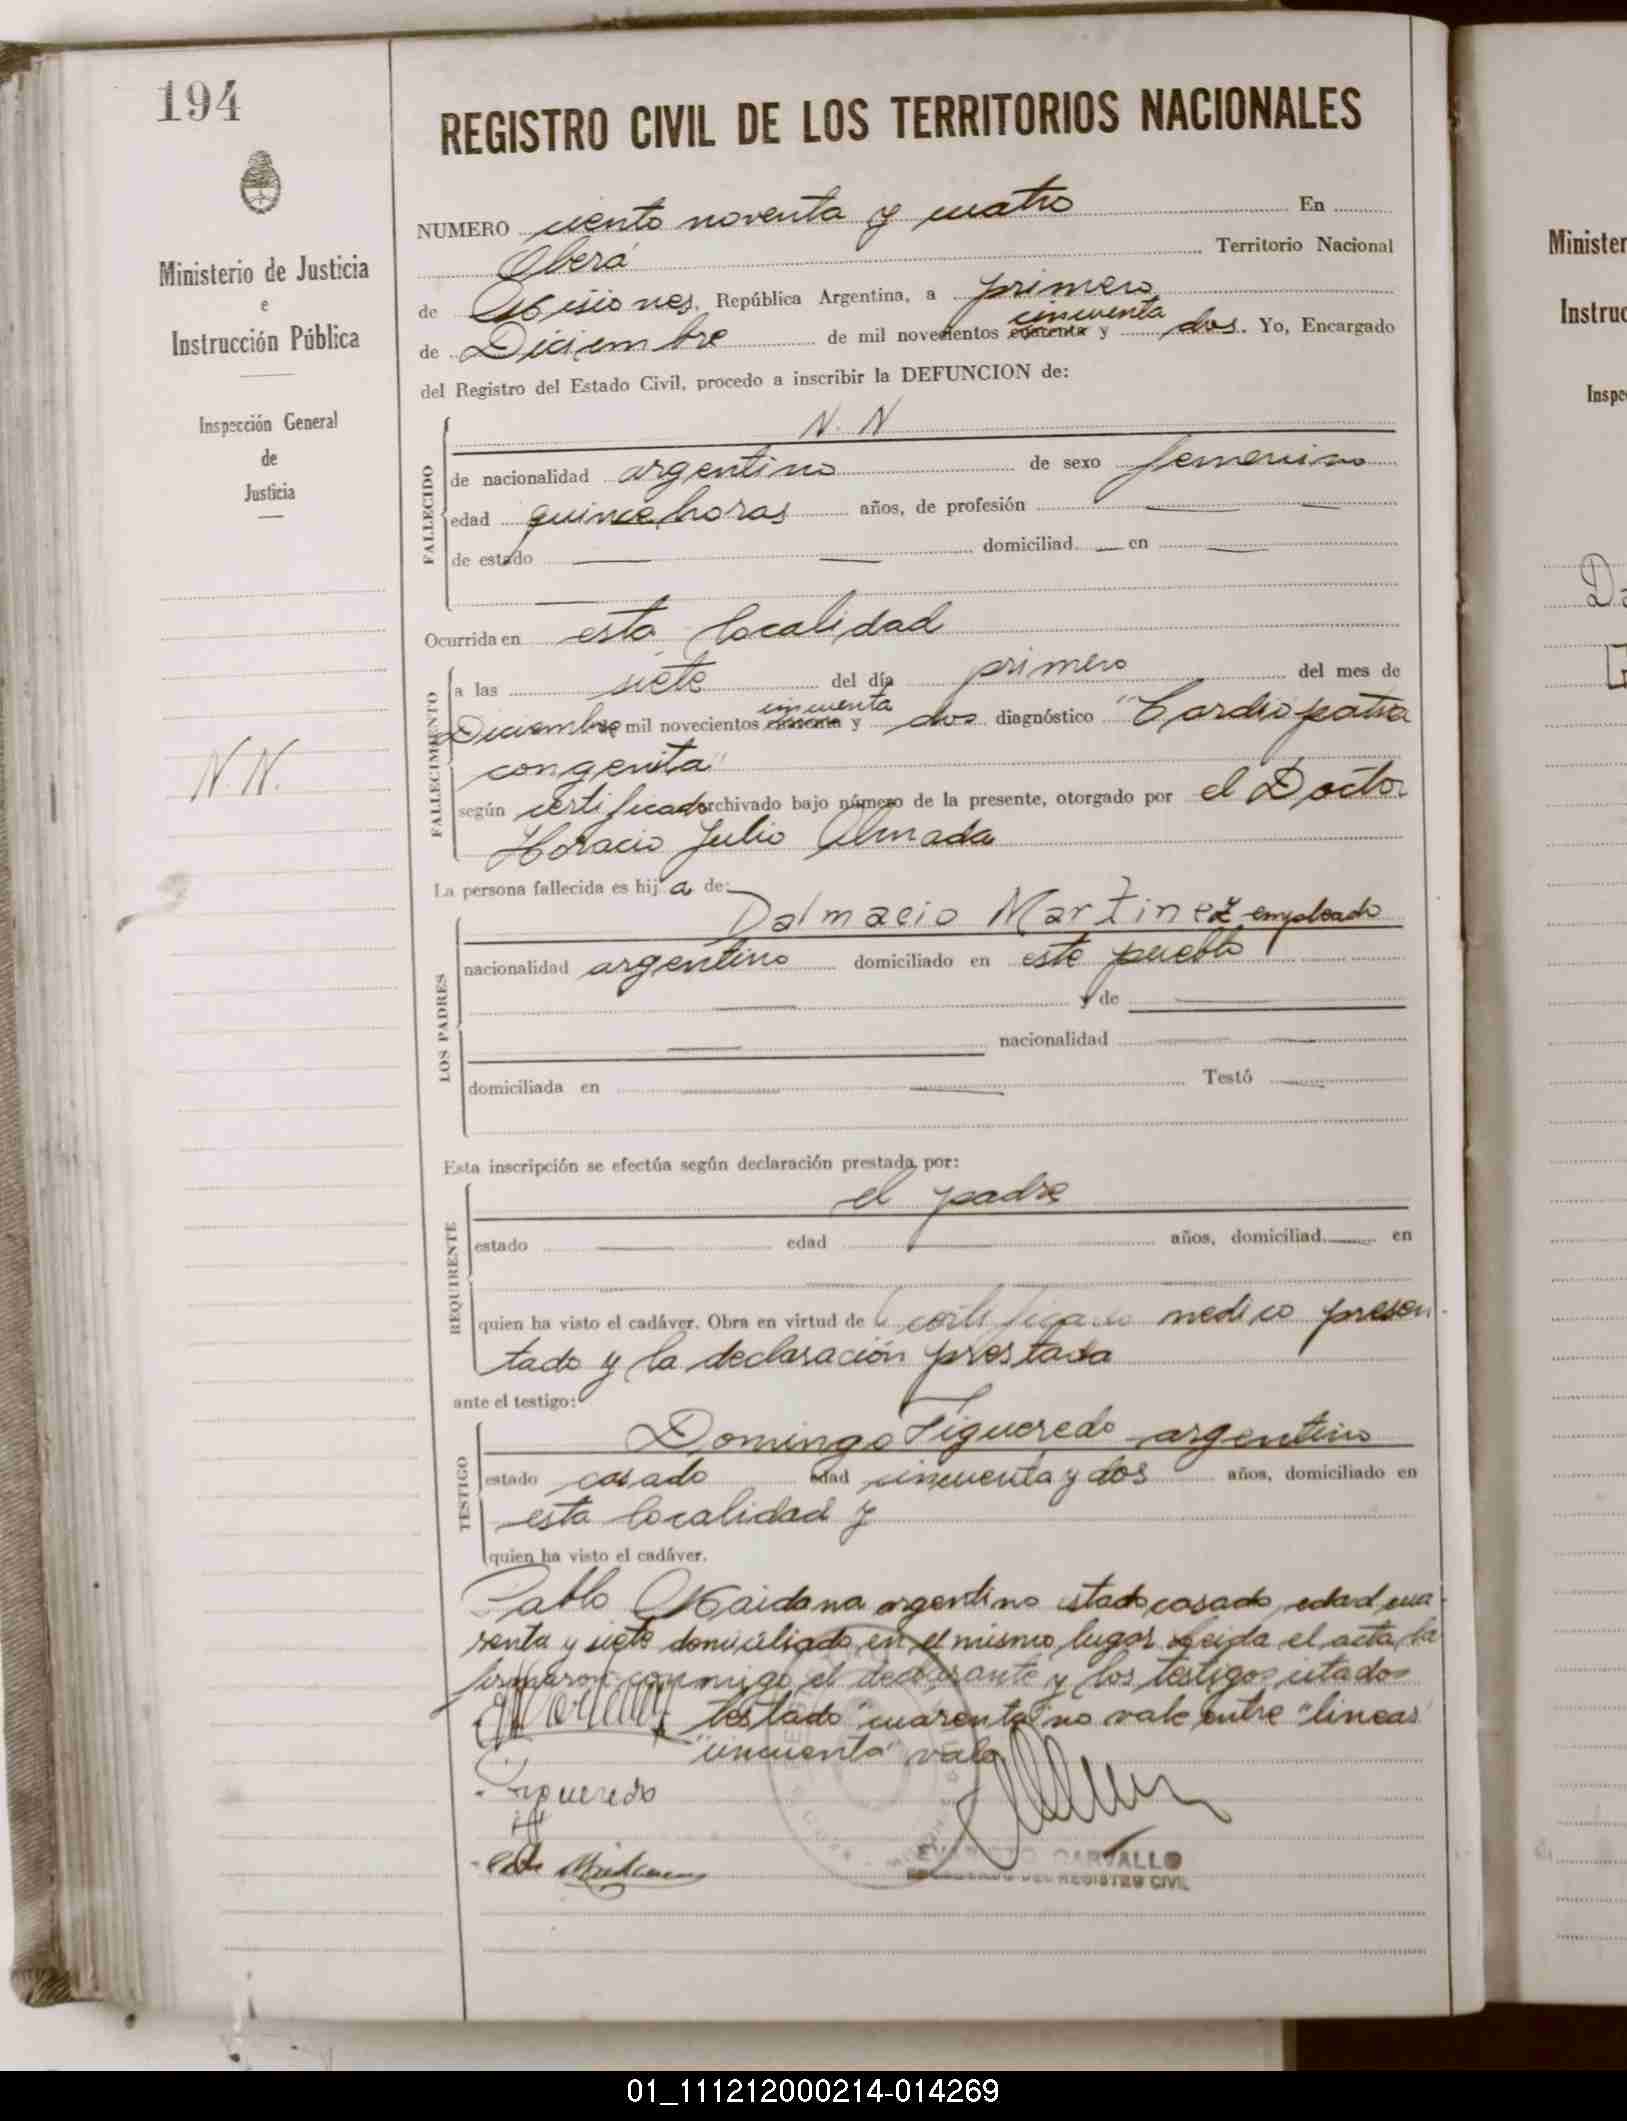 194
REGISTRO CIVIL DE LOS TERRITORIOS NACIONALES
Ministerio de Justicia
e
Instrucción Pública
Inspección General
de
Justicia
N.N.
NUMERO ciento noventa y cuatro En
Oberá Territorio Nacional
de Misiones, República Argentina, a primero
cincuenta
de Diciembre de mil novecientos cuarenta y dos. Yo, Encargado
del Registro del Estado Civil, procedo a inscribir la DEFUNCION de:
FALLECIDO
N. N
de nacionalidad argentino de sexo femenino
edad quince horas años, de profesión
de estado domiciliad en
Ocurrida en esta localidad
FALLECIMIENTO
a las siete del día primero del mes de
cincuenta
Diciembre de mil novecientos cuarenta y dos diagnóstico "Cardiopatia
congenita"
según certificado archivado bajo número de la presente, otorgado por el Doctor
Horacio Julio Almada
La persona fallecida es hija de:
LOS PADRES
Dalmacio Martinez empleado
nacionalidad argentino domiciliado en este pueblo
y de
nacionalidad
domiciliada en Testó
Esta inscripción se efectúa según declaración prestada por:
REQUIRENTE
el padre
estado edad años, domiciliad en
quien ha visto el cadáver. Obra en virtud de certificado medico presen-
tado y la declaración prestada
ante el testigo:
TESTIGO
Domingo Figueredo argentino
estado casado edad cincuenta y dos años, domiciliado en
esta localidad y
quien ha visto el cadáver.
Pablo Maidana argentino estado casado edad cua-
renta y siete domiciliado en el mismo lugar Leida el acta la
firmaron conmigo el declarante y los testigos citados
testado "cuarenta" no vale entre "lineas"
"cincuenta" vale
Figueredo
CARVALLO
ENCARGADO DEL REGISTRO CIVIL
Minister
Instruc
Inspe
01_111212000214-014269